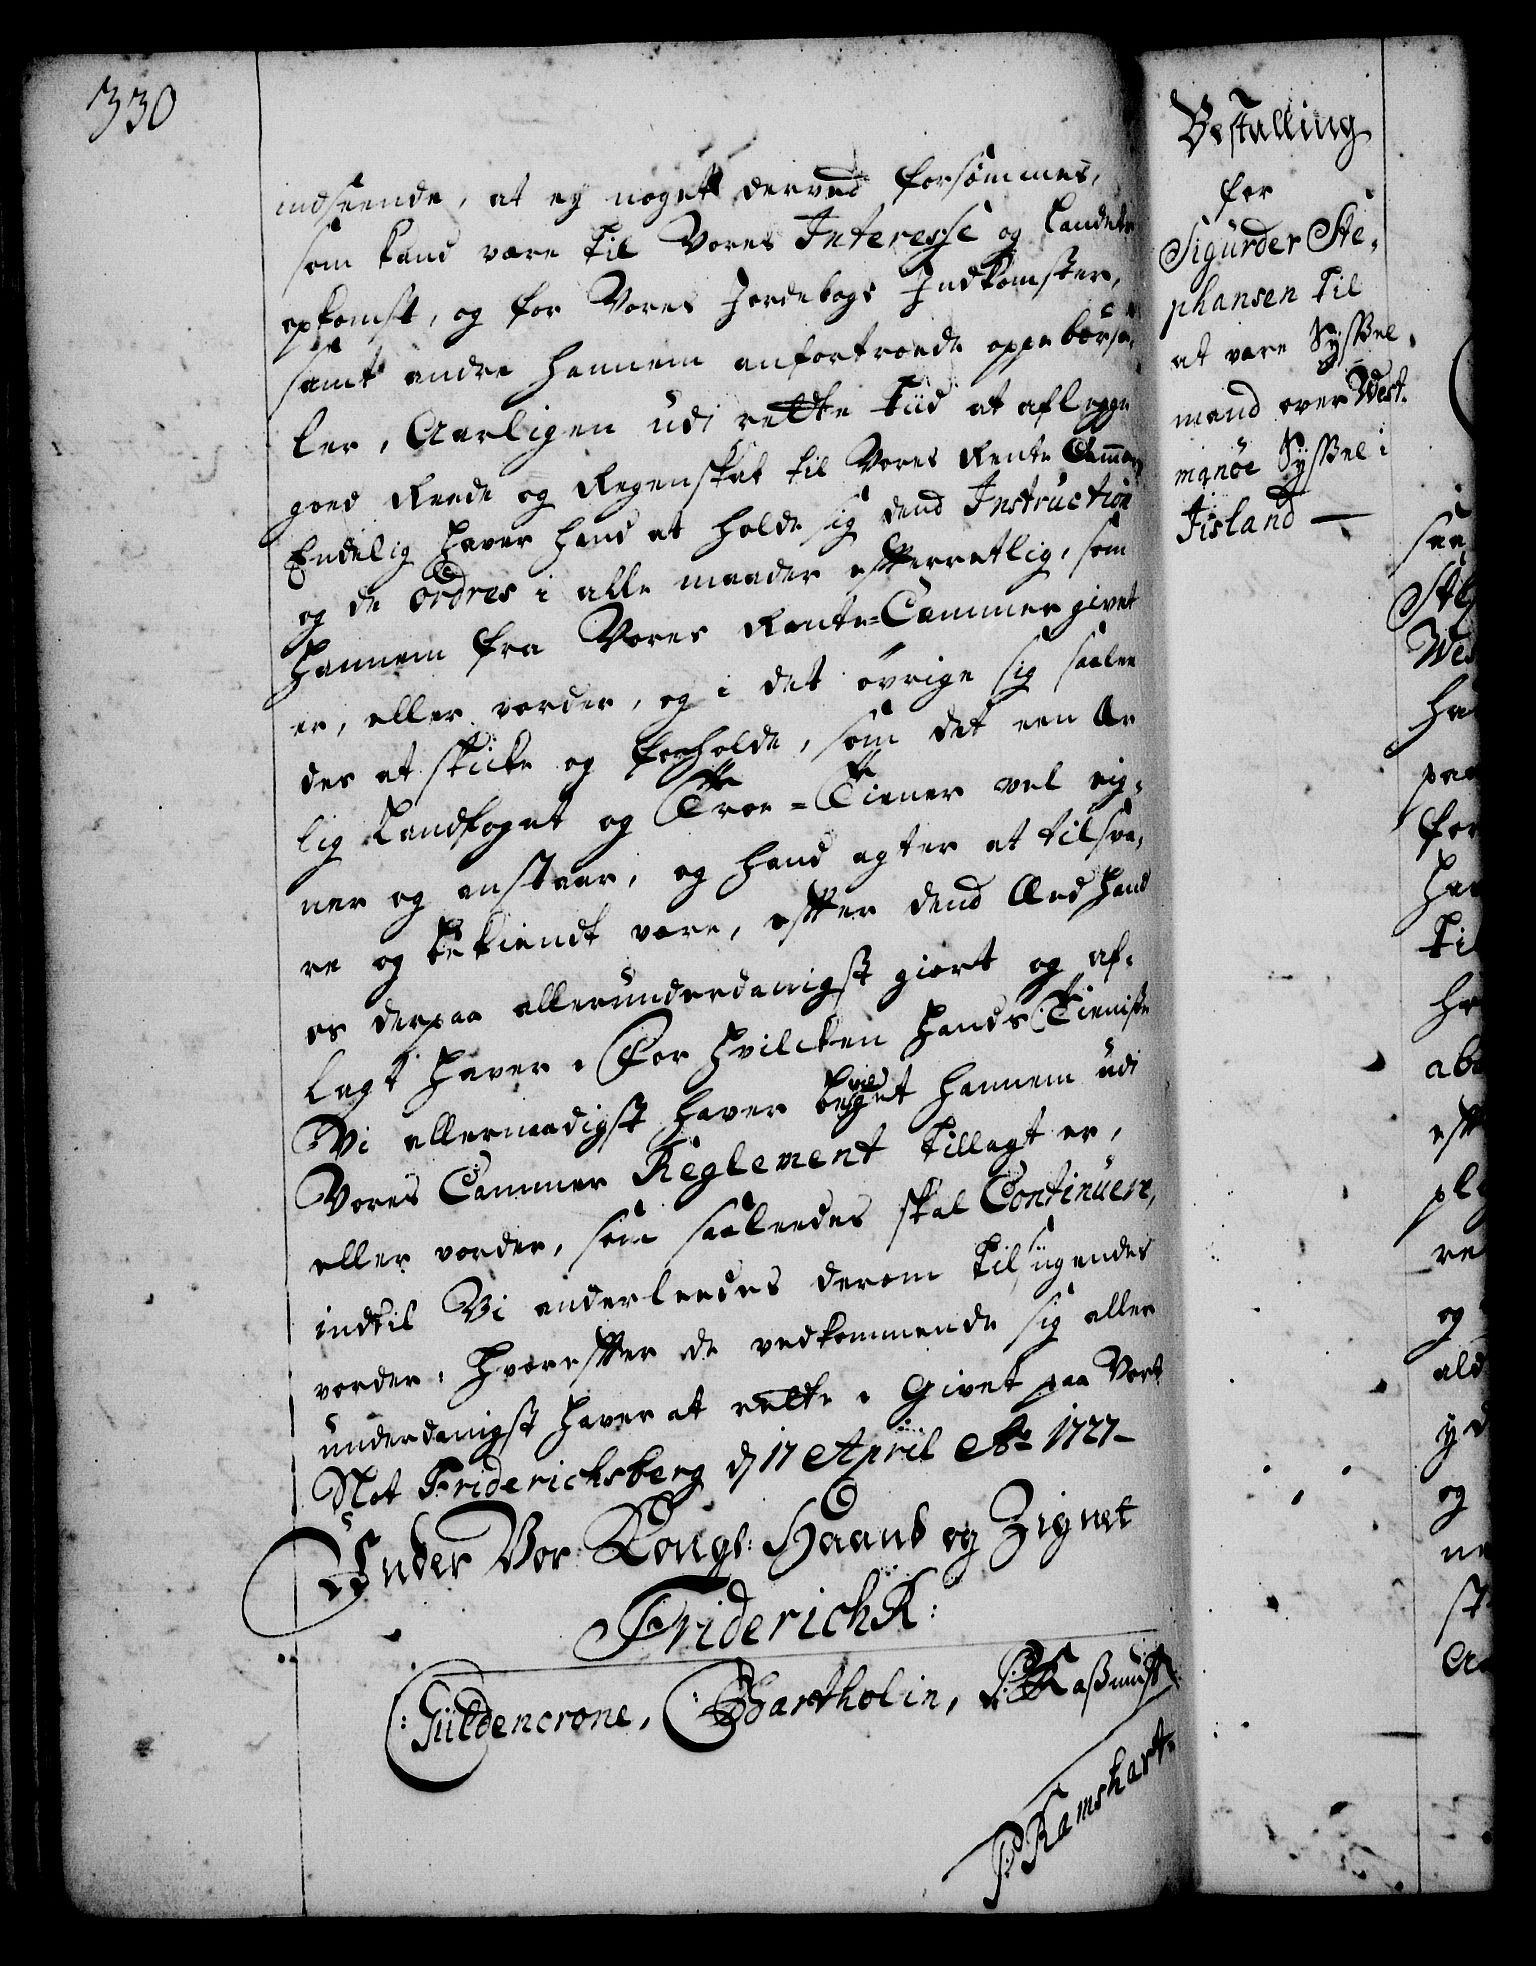 330
indseende, at ey noget derved forsömmes,
som kand være til Vores Interesse og Landets
opkomst, og for Vores Jordebogs Indkomster,
samt andre hannem anfortroede oppebörse,
ler, Aarligen udi rette tiid at aflegge
goed Reede og Regenskab til Vores Rente Cammer,
Endelig haver hand at holde sig dend Instruction
og de Ordres i alle maader efterretlig, som
hannem fra Vores Rente=Cammer givet
er, eller vorder, og i det övrige sig saalee
des at skicke og forholde, som det een Ær
lig Landfoget og Troe=Tiener vel eig,
ner og anstaar, og hand agter at tilsva,
re og bekiendt være, efter dend Æed hand
os derpaa allerunderdanigst giort og af,
lagt haver. For hvilcken hands Tieniste
Vi allernaadigst haver hvad hannem udi
Vores Cammer Reglement tillagt er,
eller vorder, som saaleedes skal Continuere,
indtil Vi anderleedes derom tilsigendes
vorder. Hvorefter de vedkommende sig aller
underdanigst haver at rette. Givet paa Vort
Slot Friderichsberg d 17 April Ao 1727
Under Vor Kongl: Haand og Zignet
Friderich R:
Güldencrone, C: Bartholin,
P: Ramshart
Bestalling
for
Sigurder Ste,
phansen til
at være Sÿssel,
mand over West,
manöe Sÿssel i
Jisland —